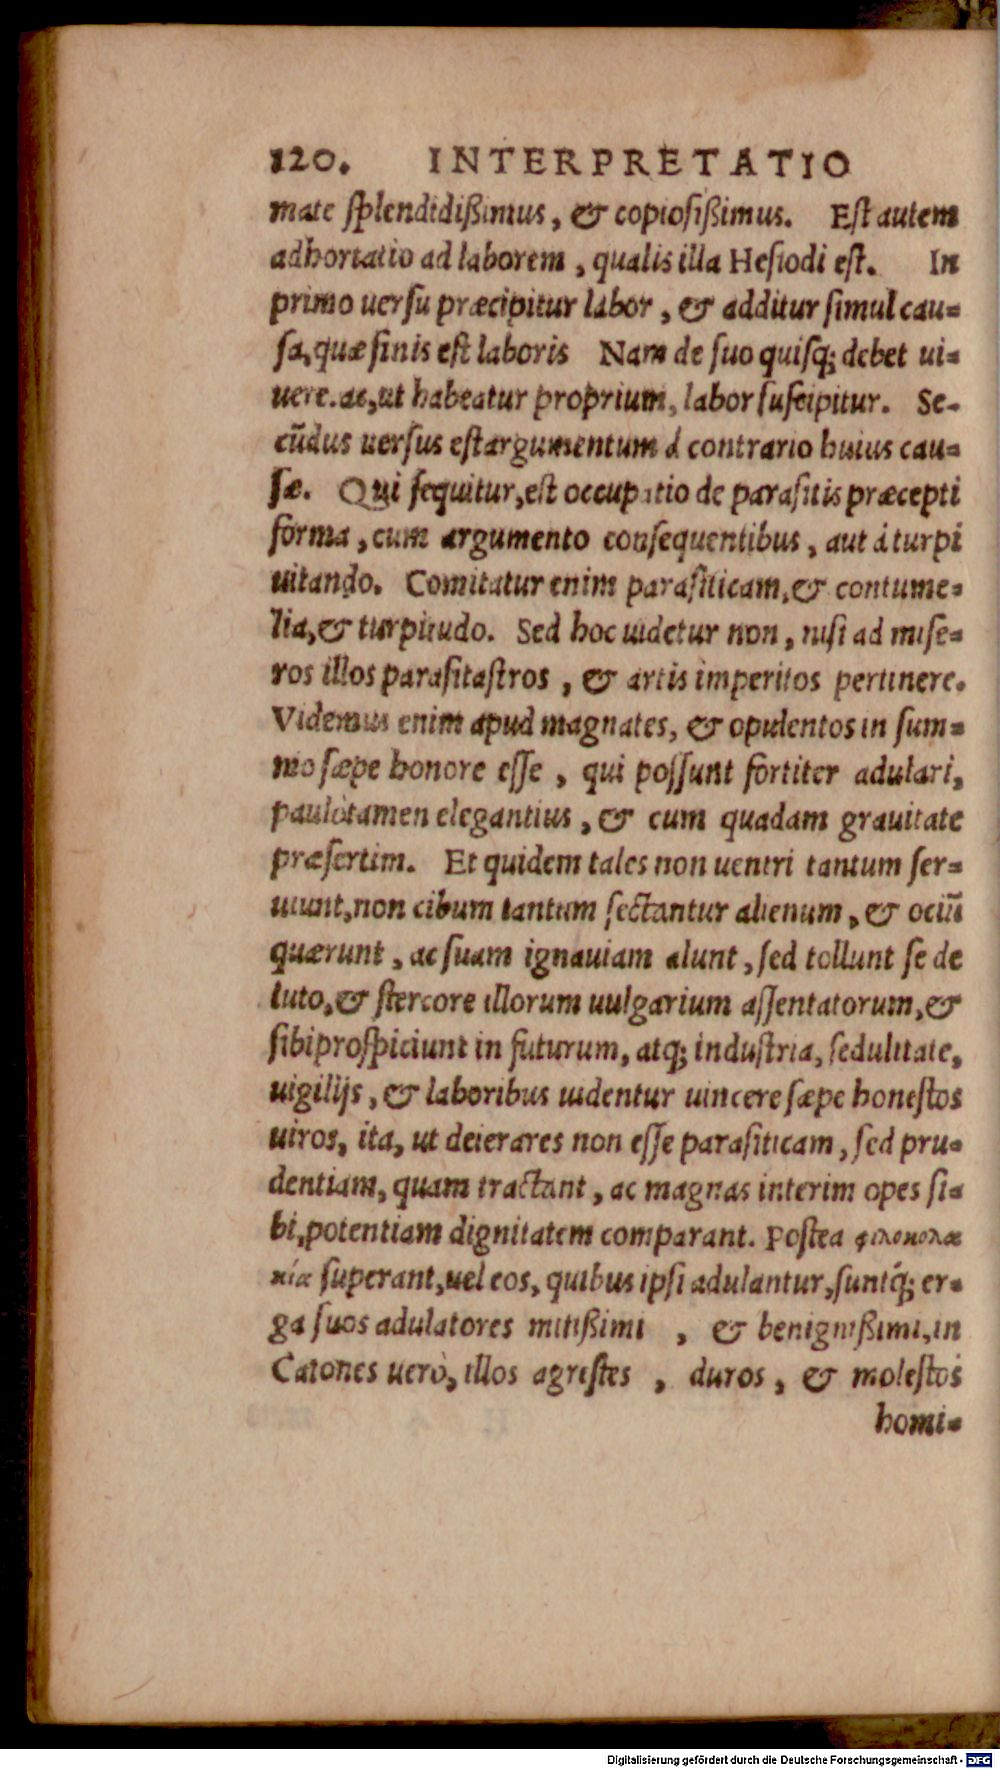 120. INTERPRETATIO
mate ſplendidißimus, & copioſißimus. Eſt autem
adhortatio ad laborem, qualis illa Heſiodi eſt. In
primo uerſu præcipitur labor, & additur ſimul cau-
ſa, quæ finis eſt laboris Nam de ſuo quiſq; debet ui-
uere. ac, ut habeatur proprium, labor ſuſcipitur. Se-
cũdus uerſus eſt argumentum à contrario huius cau-
ſæ. Qui ſequitur, eſt occupatio de paraſitis præcepti
forma, cum argumento conſequentibus, aut à turpi
uitando. Comitatur enim paraſiticam, & contume-
lia, & turpitudo. Sed hoc uidetur non, niſi ad miſe-
ros illos paraſitaſtros, & artis imperitos pertinere.
Videmus enim apud magnates, & opulentos in ſum-
mo ſæpe honore eſſe, qui poſſunt fortiter adulari,
paulò tamen elegantius, & cum quadam grauitate
præſertim. Et quidem tales non uentri tantum ſer-
uiunt, non cibum tantum ſectantur alienum, & ociũ
quærunt, ac ſuam ignauiam alunt, ſed tollunt ſe de
luto, & ſtercore illorum uulgarium aſſentatorum, &
ſibi proſpiciunt in futurum, atq; induſtria, ſedulitate,
uigilijs, & laboribus uidentur uincere ſæpe honeſtos
uiros, ita, ut deierares non eſſe paraſiticam, ſed pru-
dentiam, quam tractant, ac magnas interim opes ſi-
bi, potentiam dignitatem comparant. Poſtea φιλοκολα
κία ſuperant, uel eos, quibus ipſi adulantur, ſuntq́; er-
ga ſuos adulatores mitißimi, & benignißimi, in
Catones uerò, illos agreſtes, duros, & moleſtos
homi-
Digitalisierung gefördert durch die Deutsche Forschungsgemeinschaft - DFG